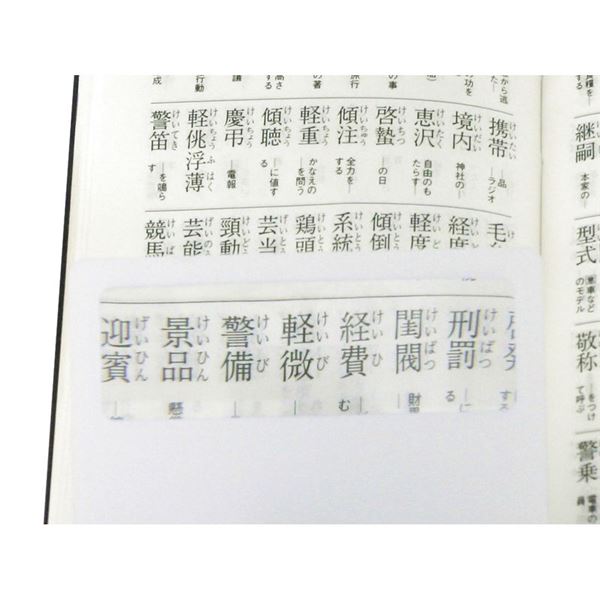 継嗣 本家の―
型式 車など
のモデル
敬称 ―をつけ
て呼ぶ
警乗 電車の
員
から逃
た―
の功を
の事
旅行
の著
高さ
する
議
行動
成
携帯 けいたい ―品
―ラジオ
境内 けいだい 神社の―
恵沢 けいたく 自由のも
たらす―
啓蟄 けいちつ ―の日
傾注 けいちゅう 全力を―
する
軽重 けいちょう かなえの―
を問う
傾聴 けいちょう ―に値す
る
慶弔 けいちょう ―電報
軽佻浮薄 けいちょうふはく
警笛 けいてき ―を鳴ら
す
経度
軽度
傾倒
系統
鶏頭
芸当
頸動
芸能
競馬
する
刑罰 けいばつ ―に
る
閨閥 けいばつ 財
経費 けいひ ―
む
軽微 けいび ―
警備 けいび ―
景品 けいひん 懸
迎賓 げいひん ―